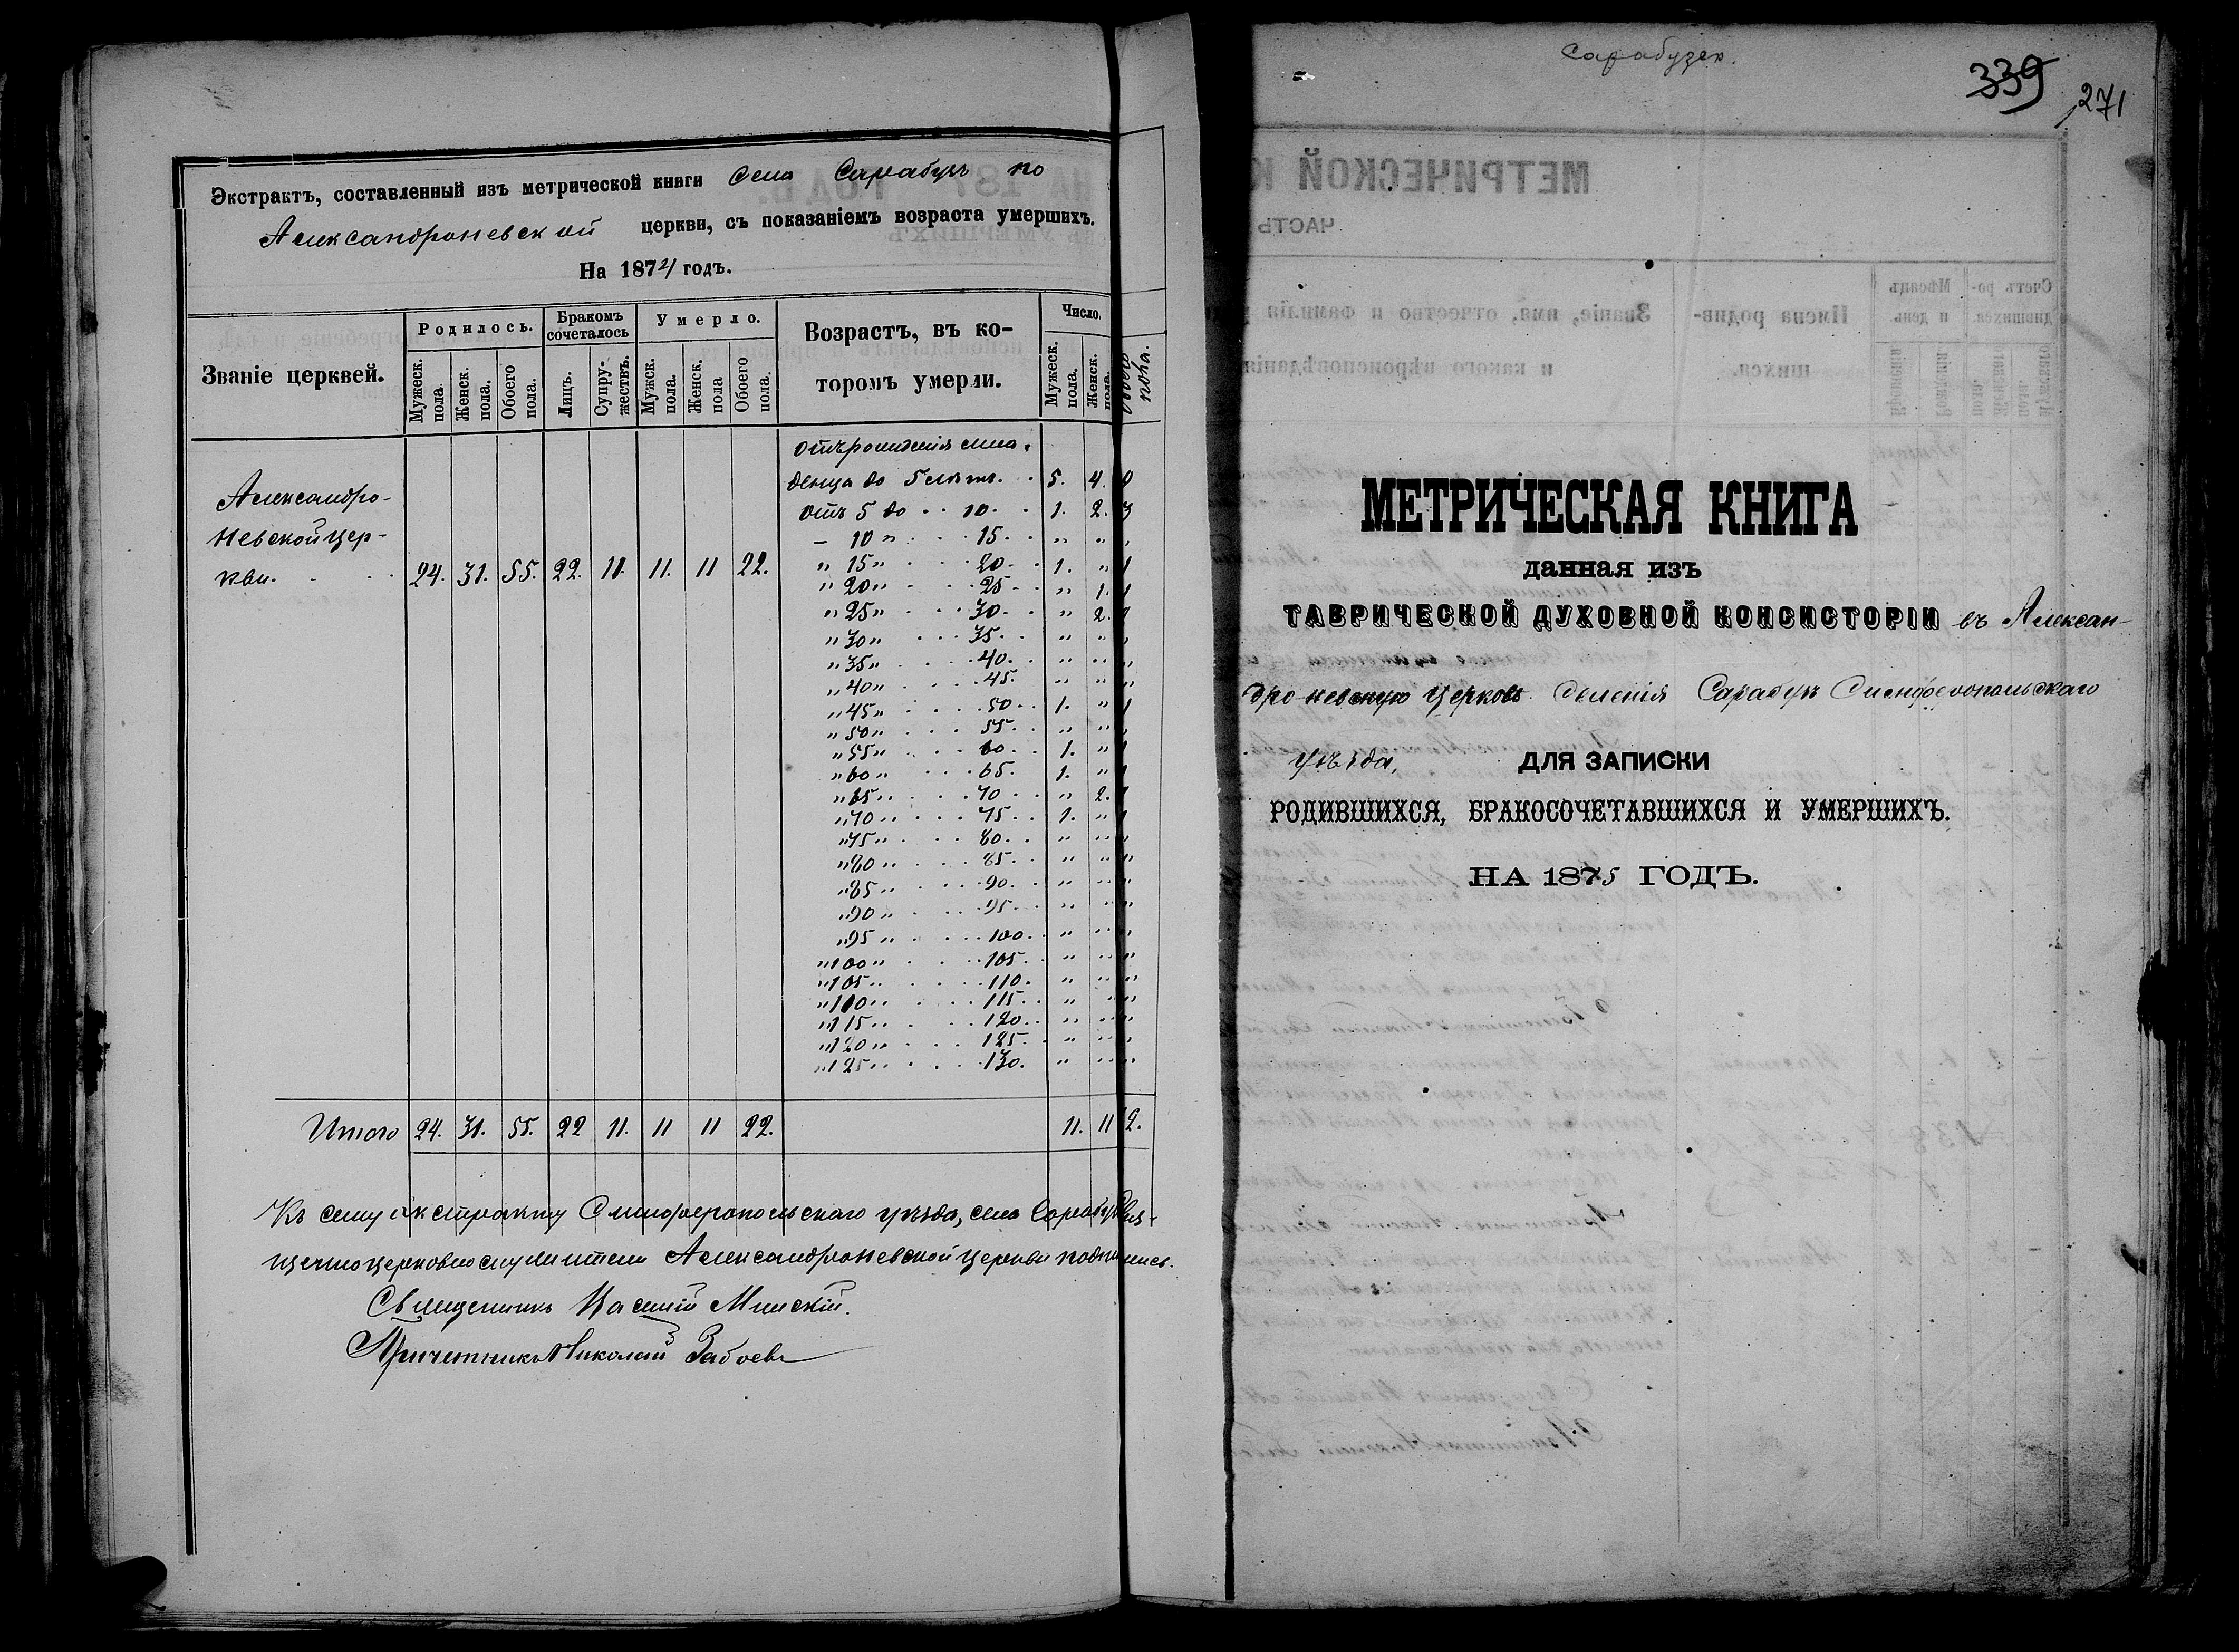 Экстрактъ, составленный изъ метрической книги села Сарабузъ по
Александроневской церкви, съ показаніемъ возраста умершихъ.
На 1874 годъ.
Званіе церквей. Родилось. Бракомъ сочеталось Умерло. Возрастъ, въ ко- Число.
Мужеск. пола. Женск. пола. Обоего пола. Лицъ. Супру-жествъ. Мужск. пола. Женск. пола Обоего пола. торомъ умерли. Мужеск. пола. Женск. пола. Обоего пола.
отъ рожденія мла-
денца до 5 лѣтъ. 5. 4.
Александро-
отъ 5 до 10. 1. 2. 3
Невской цер-
– 10 „ 15. „ „ „
кви. 24. 31. 55. 22. 11. 11. 11 22.
„ 15 „ 20. 1. „ 1
„ 20 „ 25 „ 1. 1
„ 25 „ 30. „ 2.
„ 30 „ 35. „ „ „
„ 35 „ 40. „ „ „
„ 40 „ 45. „ „ „
„ 45 „ 50. 1. „ 1
„ 50 „ 55. „ „ „
„ 55 „ 60. 1. „ 1
„ 60 „ 65. 1. „ 1
„ 65 „ 70 „ 2.
„ 70 „ 75. 1. „ 1
„ 75 „ 80. „ „ „
„ 80 „ 85. „ „ „
„ 85 „ 90. „ „ „
„ 90 „ 95. „ „ „
„ 95 „ 100. „ „ „
„ 100 „ 105. „ „ „
„ 105 „ 110. „ „ „
„ 110 „ 115. „ „ „
„ 115 „ 120. „ „ „
„ 120 „ 125. „ „ „
„ 125 „ 130. „ „ „
Итого 24. 31. 55. 22 11. 11 11 22. 11. 11 2.
Къ сему экстракту Симферопольскаго уѣзда, села Сарабузъ Свя-
щенноцерковнослужители Александроневской церкви подписались.
Священникъ Василій Минскій.
Причетникъ Николай Забоевъ
Сарабузск.
339
271
МЕТРИЧЕСКАЯ КНИГА
данная изъ
ТАВРИЧЕСКОЙ ДУХОВНОЙ КОНСИСТОРІИ въ Алексан-
дро-невскую церковь селенія Сарабузъ Симферопольскаго
уѣзда, ДЛЯ ЗАПИСКИ
РОДИВШИХСЯ, БРАКОСОЧЕТАВШИХСЯ И УМЕРШИХЪ.
НА 1875 ГОДЪ.